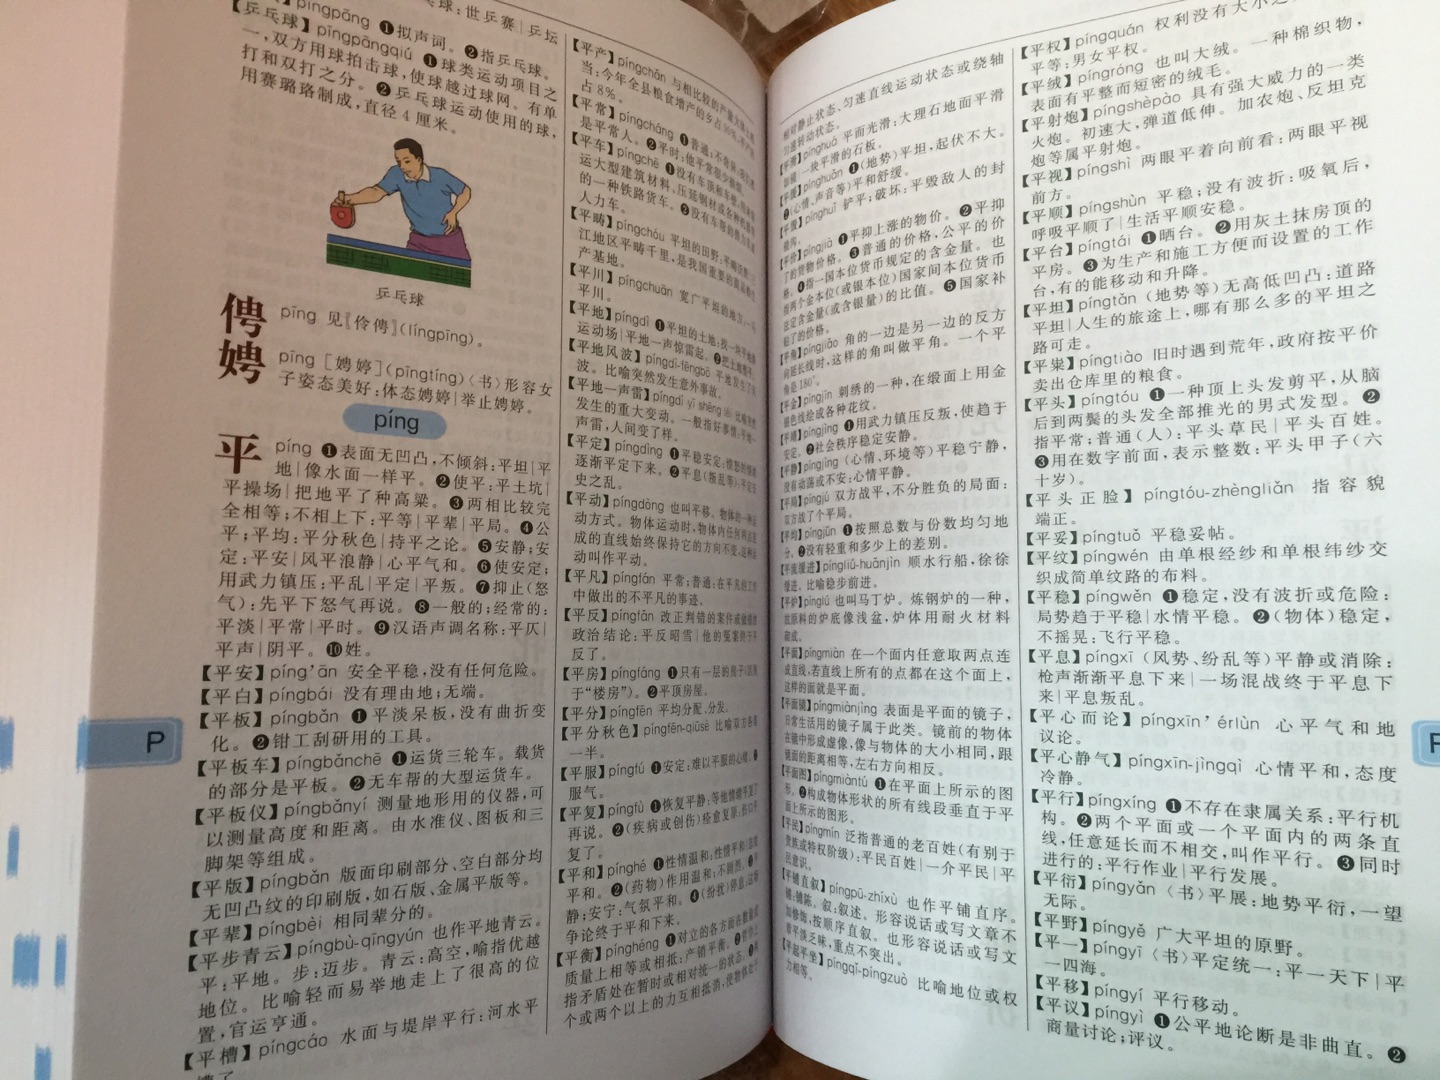 乓球:世乒赛|乒坛
pīngpāng ❶拟声词。❷指乒乓球。
【乒乓球】pīngpāngqiú ❶球类运动项目之
一,双方用球拍击球,使球越过球网。有单
打和双打之分。❷乒乓球运动使用的球,
用赛璐珞制成,直径4厘米。
乒乓球
俜 pīng 见〖伶俜〗(língpīng)。
娉 pīng [娉婷](pīngtíng)〈书〉形容女
子姿态美好:体态娉婷|举止娉婷。
píng
平 píng ❶表面无凹凸,不倾斜:平坦|平
地|像水面一样平。❷使平:平土坑|
平操场|把地平了种高粱。❸两相比较完
全相等;不相上下:平等|平辈|平局。❹公
平;平均:平分秋色|持平之论。❺安静;安
定:平安|风平浪静|心平气和。❻使安定;
用武力镇压:平乱|平定|平叛。❼抑止(怒
气):先平下怒气再说。❽一般的;经常的:
平淡|平常|平时。❾汉语声调名称:平仄|
平声|阴平。❿姓。
【平安】píng’ān 安全平稳;没有任何危险。
【平白】píngbái 没有理由地;无端。
【平板】píngbǎn ❶平淡呆板,没有曲折变
化。❷钳工刮研用的工具。
【平板车】píngbǎnchē ❶运货三轮车。载货
的部分是平板。❷无车帮的大型运货车。
【平板仪】píngbǎnyí 测量地形用的仪器,可
以测量高度和距离。由水准仪、图板和三
脚架等组成。
【平版】píngbǎn 版面印刷部分、空白部分均
无凹凸纹的印刷版,如石版、金属平版等。
【平辈】píngbèi 相同辈分的。
【平步青云】píngbù-qīngyún 也作平地青云。
平:平地。步:迈步。青云:高空,喻指优越
地位。比喻轻而易举地走上了很高的位
置,官运亨通。
【平槽】píngcáo 水面与堤岸平行:河水平
槽了
P
【平产】píngchǎn 与相比较的产量
当:今年全县粮食增产的乡占
占8%。
【平常】píngcháng ❶普通;不
是平常人。❷平时:他平常
【平车】píngchē ❶没有车顶和车
运大型建筑材料、压延钢材或各种机
的一种铁路货车。❷没有车帮的
人力车。
【平畴】píngchóu 平坦的田野:平畴
江地区平畴千里,是我国重要的
产基地。
【平川】píngchuān 宽广平坦的地
平川。
【平地】píngdì ❶平坦的土地:找一块平地
运动场|平地一声惊雷起。❷把土地
【平地风波】píngdì-fēngbō 平地发生了
波。比喻突然发生意外事故。
【平地一声雷】píngdì yī shēng léi 比喻突然
发生的重大变动。一般指好事情:平地一
声雷,人间变了样。
【平定】píngdìng ❶平稳安定:愤怒的情绪
逐渐平定下来。❷平息(叛乱等):平定安
史之乱。
【平动】píngdòng 也叫平移。物体的一种运
动方式。物体运动时,物体内任何两点连
成的直线始终保持它的方向不变,这种运
动叫作平动。
【平凡】píngfán 平常;普通:在平凡的工作
中做出的不平凡的事迹。
【平反】píngfǎn 改正判错的案件或做错的
政治结论:平反昭雪|他的冤案终于平
反了。
【平房】píngfáng ❶只有一层的房子(区别
于“楼房”)。❷平顶房屋。
【平分】píngfēn 平均分配、分发。
【平分秋色】píngfēn-qiūsè 比喻双方各得
一半。
【平服】píngfú ❶安定:难以平服的心绪。❷
服气。
【平复】píngfù ❶恢复平静:等他情绪平复了
再说。❷(疾病或创伤)痊愈复原:伤口平
复了。
【平和】pínghé ❶性情温和:性情平和|态度
平和。❷(药物)作用温和;不剧烈。❸平
静;安宁:气氛平和。❹(纷扰)停息:这场
争论终于平和下来。
【平衡】pínghéng ❶对立的各方面在数量或
质量上相等或相抵:产销平衡。❷哲学上
指矛盾处在暂时或相对统一的状态。❸两
个或两个以上的力互相抵消,使物体处于
相对静止状态、匀速直线运动状态或绕轴
匀速转动状态。
【平滑】pínghuá 平而光滑:大理石地面平滑
如镜|一块平滑的石板。
【平缓】pínghuǎn ❶(地势)平坦,起伏不大。
❷(心情、声音等)平和舒缓。
【平毁】pínghuǐ 铲平;破坏:平毁敌人的封
锁沟。
【平价】píngjià ❶平抑上涨的物价。❷平抑
了的货物价格。❸普通的价格,公平的价
格。❹指一国本位货币规定的含金量。也
指两个金本位(或银本位)国家间本位货币
法定含金量(或含银量)的比值。❺国家补
贴了的价格。
【平角】píngjiǎo 角的一边是另一边的反方
向延长线时,这样的角叫做平角。一个平
角是180°。
【平金】píngjīn 刺绣的一种,在缎面上用金
银色线绘成各种花纹。
【平靖】píngjìng ❶用武力镇压反叛,使趋于
安定。❷社会秩序稳定安静。
【平静】píngjìng (心情、环境等)平稳宁静,
没有动荡或不安:心情平静。
【平局】píngjú 双方战平,不分胜负的局面:
双方战了个平局。
【平均】píngjūn ❶按照总数与份数均匀地
分。❷没有轻重和多少上的差别。
【平流缓进】píngliú-huǎnjìn 顺水行船,徐徐
缓进。比喻稳步前进。
【平炉】pínglú 也叫马丁炉。炼钢炉的一种,
放原料的炉底像浅盆,炉体用耐火材料
砌成。
【平面】píngmiàn 在一个面内任意取两点连
成直线,若直线上所有的点都在这个面上,
这样的面就是平面。
【平面镜】píngmiànjìng 表面是平面的镜子,
日常生活用的镜子属于此类。镜前的物体
在镜中形成虚像,像与物体的大小相同,跟
镜面的距离相等,左右方向相反。
【平面图】píngmiàntú ❶在平面上所示的图
形。❷构成物体形状的所有线段垂直于平
面上所示的图形。
【平民】píngmín 泛指普通的老百姓(有别于
贵族或特权阶级):平民百姓|一介平民|平
民意识。
【平铺直叙】píngpū-zhíxù 也作平铺直序。
铺:铺陈。叙:叙述。形容说话或写文章不
加修饰,按顺序直叙。也形容说话或写文
章平淡乏味,重点不突出。
【平起平坐】píngqǐ-píngzuò 比喻地位或权
力相等。
【平权】píngquán 权利没有大小之
平等:男女平权。
【平绒】píngróng 也叫大绒。一种棉织物,
表面有平整而短密的绒毛。
【平射炮】píngshèpào 具有强大威力的一类
火炮。初速大,弹道低伸。加农炮、反坦克
炮等属平射炮。
【平视】píngshì 两眼平着向前看:两眼平视
前方。
【平顺】píngshùn 平稳;没有波折:吸氧后,
呼吸平顺了|生活平顺安稳。
【平台】píngtái ❶晒台。❷用灰土抹房顶的
平房。❸为生产和施工方便而设置的工作
台,有的能移动和升降。
【平坦】píngtǎn (地势等)无高低凹凸:道路
平坦|人生的旅途上,哪有那么多的平坦之
路可走。
【平粜】píngtiào 旧时遇到荒年,政府按平价
卖出仓库里的粮食。
【平头】píngtóu ❶一种顶上头发剪平,从脑
后到两鬓的头发全部推光的男式发型。❷
指平常;普通(人):平头草民|平头百姓。
❸用在数字前面,表示整数:平头甲子(六
十岁)。
【平头正脸】píngtóu-zhèngliǎn 指容貌
端正。
【平妥】píngtuǒ 平稳妥帖。
【平纹】píngwén 由单根经纱和单根纬纱交
织成简单纹路的布料。
【平稳】píngwěn ❶稳定,没有波折或危险:
局势趋于平稳|水情平稳。❷(物体)稳定,
不摇晃:飞行平稳。
【平息】píngxī (风势、纷乱等)平静或消除:
枪声渐渐平息下来|一场混战终于平息下
来|平息叛乱。
【平心而论】píngxīn’érlùn 心平气和地
议论。
【平心静气】píngxīn-jìngqì 心情平和,态度
冷静。
【平行】píngxíng ❶不存在隶属关系:平行机
构。❷两个平面或一个平面内的两条直
线,任意延长而不相交,叫作平行。❸同时
进行的:平行作业|平行发展。
【平衍】píngyǎn 〈书〉平展:地势平衍,一望
无际。
【平野】píngyě 广大平坦的原野。
【平一】píngyī 〈书〉平定统一:平一天下|平
一四海。
【平移】píngyí 平行移动。
【平议】píngyì ❶公平地论断是非曲直。❷
商量讨论;评议。